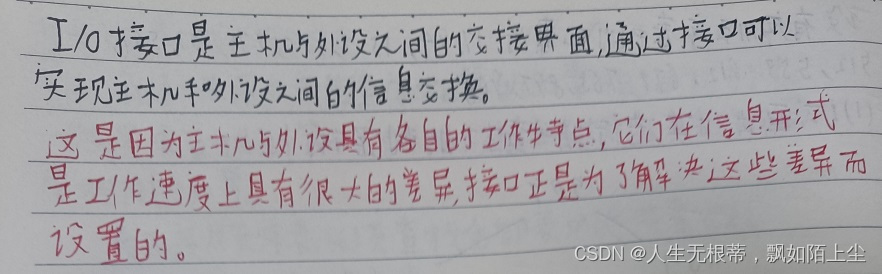 I/O接口是主机与外设之间的交接界面,通过接口可以
实现主机和外设之间的信息交换。
这是因为主机与外设具有各自的工作特点,它们在信息形式
是工作速度上具有很大的差异,接口正是为了解决这些差异而
设置的。
CSDN @人生无根蒂，飘如陌上尘